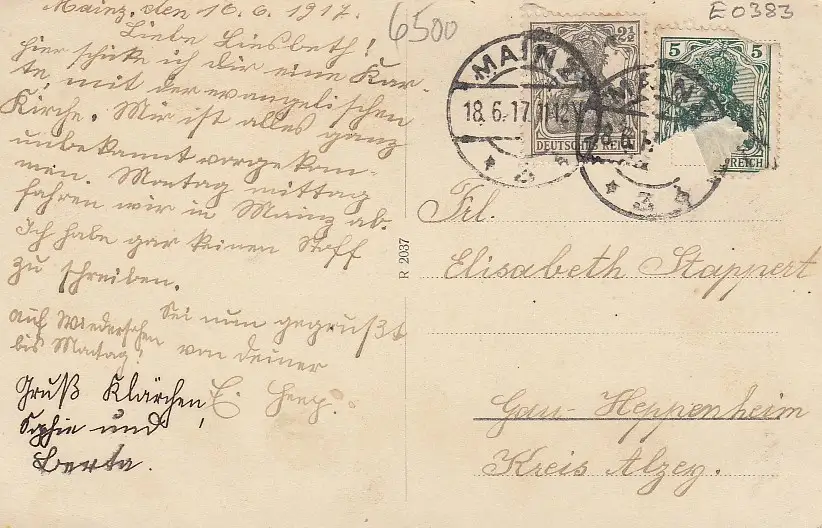 Mainz, den 16.6.1917.
Liebe Liesbeth!
hier schicke ich dir eine Kar-
te, mit der evangelischen
Kirche. Mir ist alles ganz
unbekannt vorgekom-
men. Montag mittag
fahren wir in Mainz ab.
Ich habe gar keinen Stoff
zu schreiben.
Sei nun gegrüßt
von deiner
E.
auf Wiedersehen
bis Montag!
Gruß Klärchen,
Sophie und
Berta.
6500
E0383
2½
DEUTSCHES REICH
5
5
REICH
MAINZ
18.6.17.11-12V
MAINZ
R 2037
Frl.
Elisabeth Stappert
Gau-Heppenheim
Kreis Alzey.